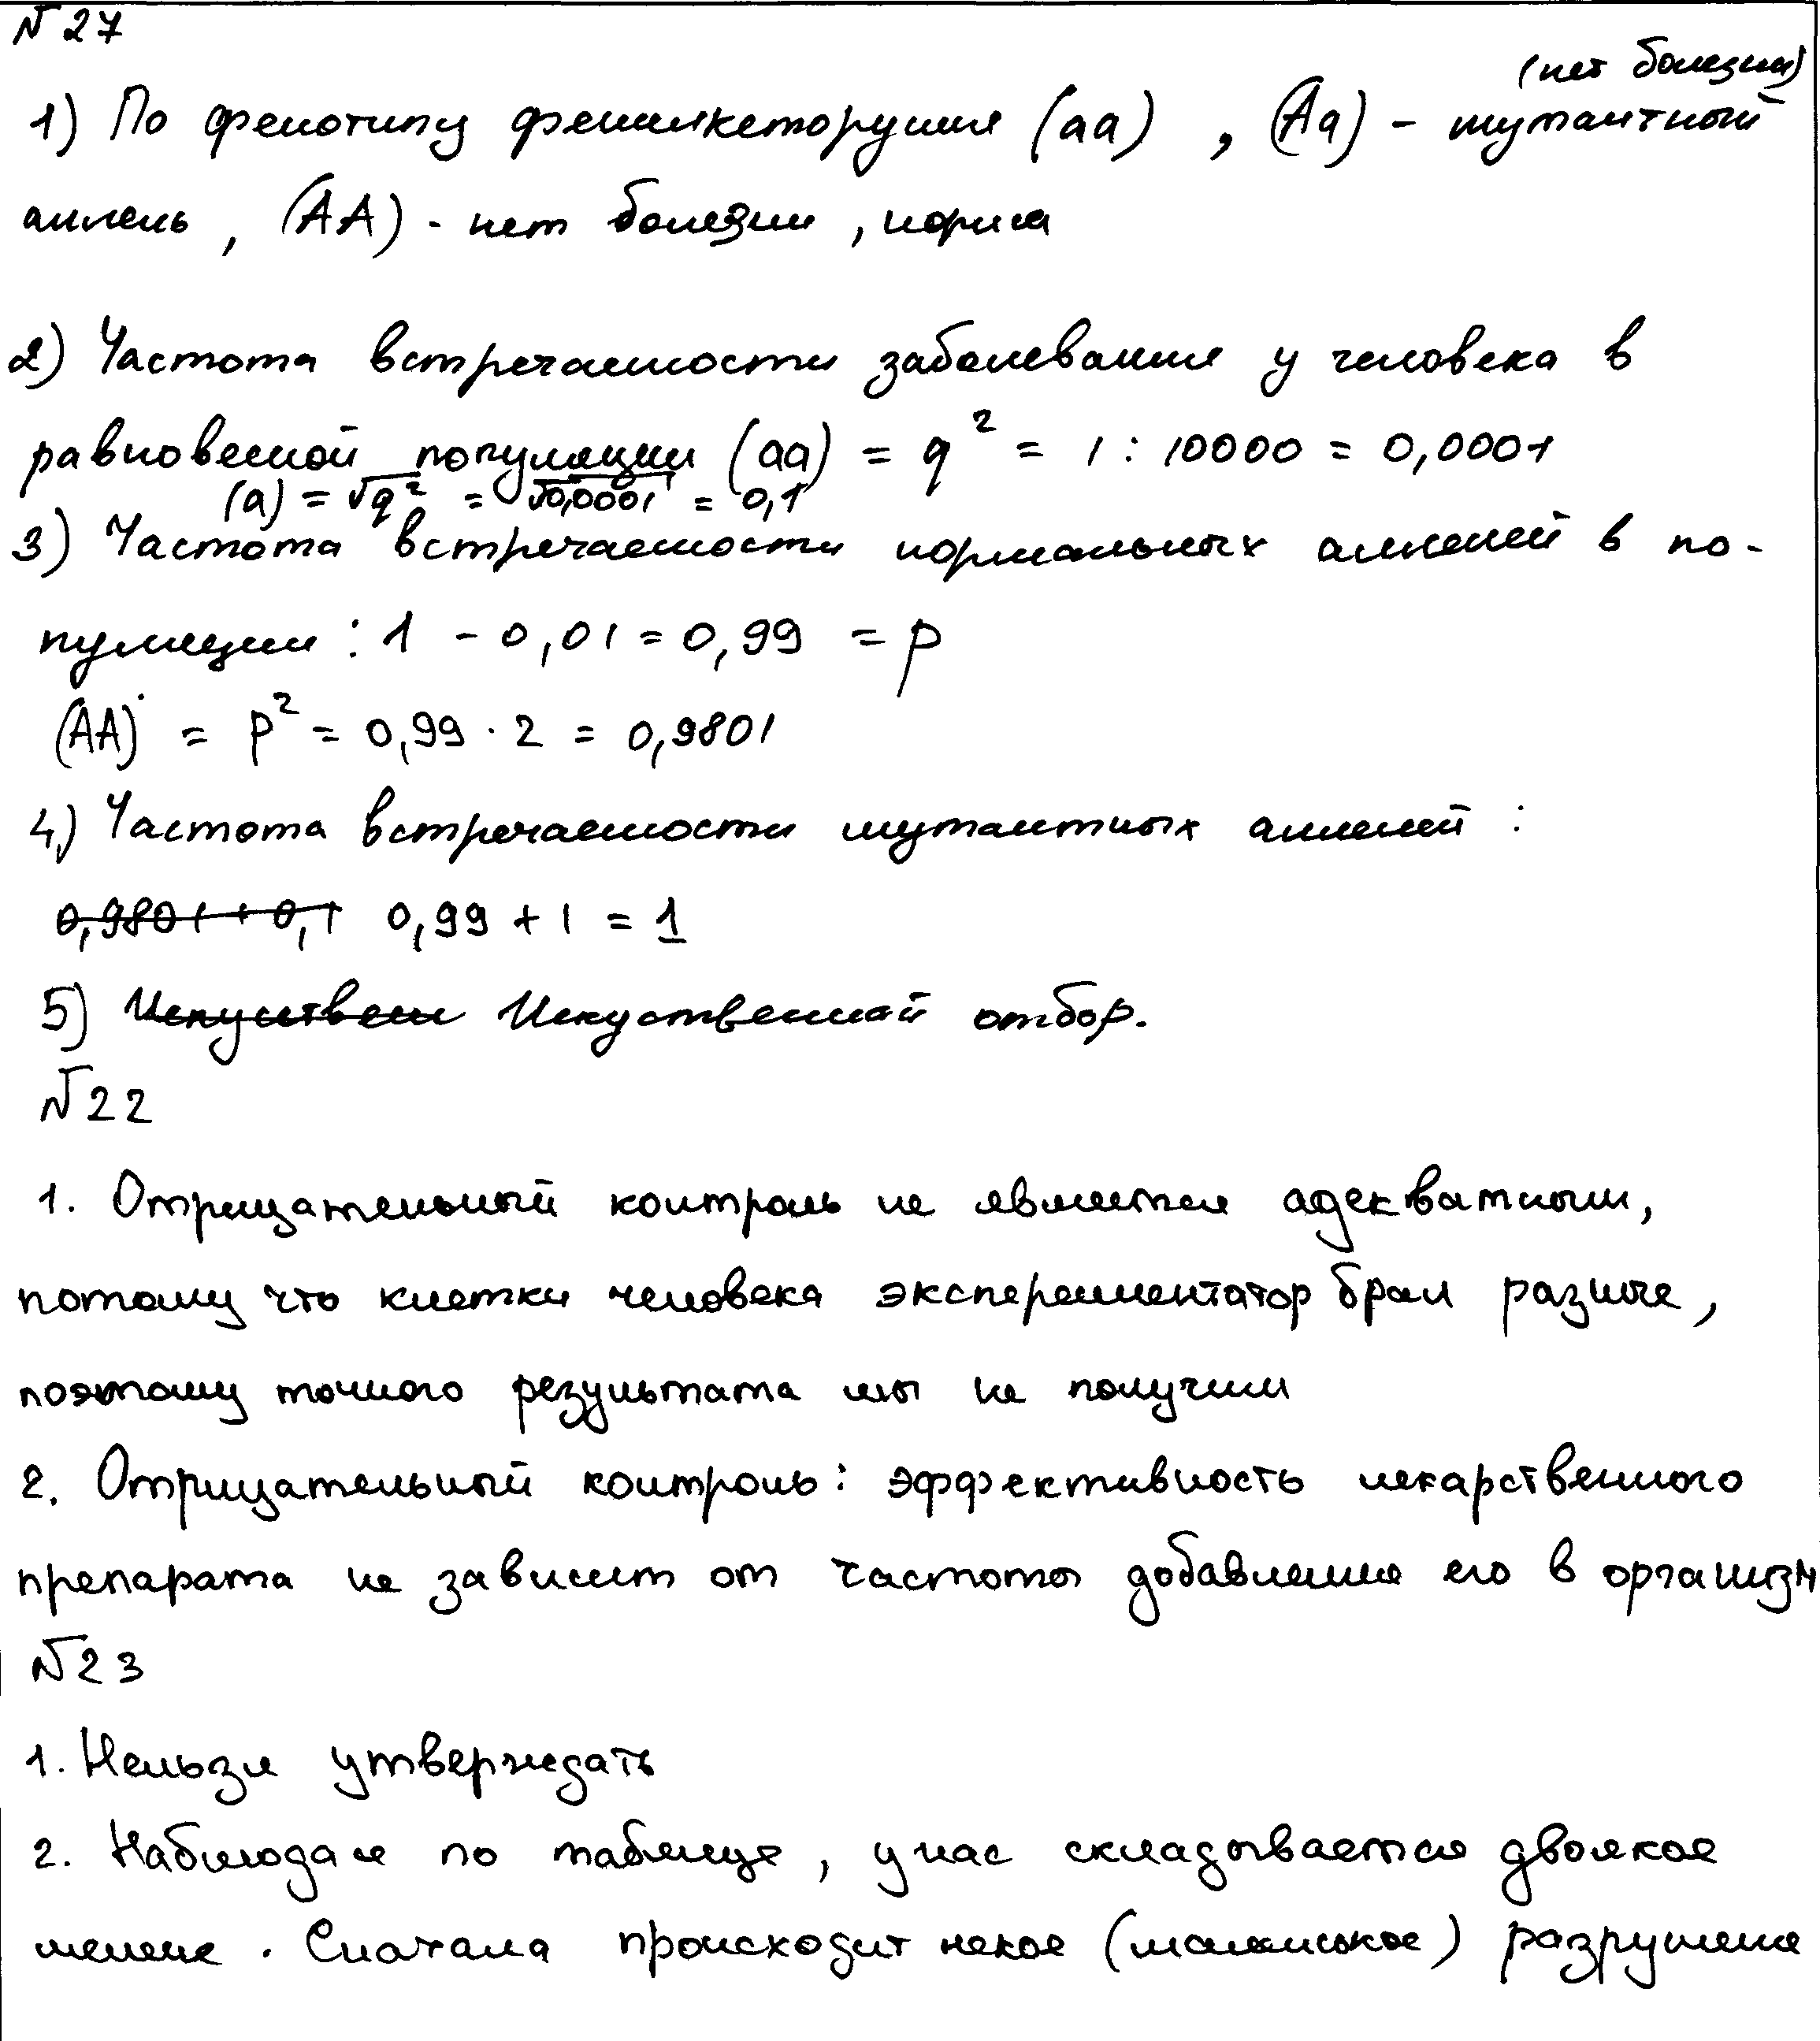 №27
(нет болезни)
1) По фенотипу фенилкеторуния (аа) , (Аа) - мутантный
аллель , (АА) - нет болезни , норма
2) Частота встречаемости заболевания у человека в
равновесной популяции (аа) = q² = 1 : 10000 = 0,0001
(а) = √q² = √0,0001 = 0,1
3) Частота встречаемости нормальных аллелей в по-
пуляции : 1 - 0,01 = 0,99 = p
(АА) = p² = 0,99 · 2 = 0,9801
4) Частота встречаемости мутантных аллелей :
0,9801 + 0,1 0,99 + 1 = 1
5) Искуствен Искуственный отбор.
№22
1. Отрицательный контроль не является адекватным,
потому что клетки человека эксперементатор брал разные,
поэтому точного результата мы не получим
2. Отрицательный контроль : эффективность лекарственного
препарата не зависит от частоты добавления его в организм
№23
1. Нельзя утверждать
2. Наблюдая по таблице, у нас складывается двоякое
мнение . Сначала происходит некое (маленькое) разрушение